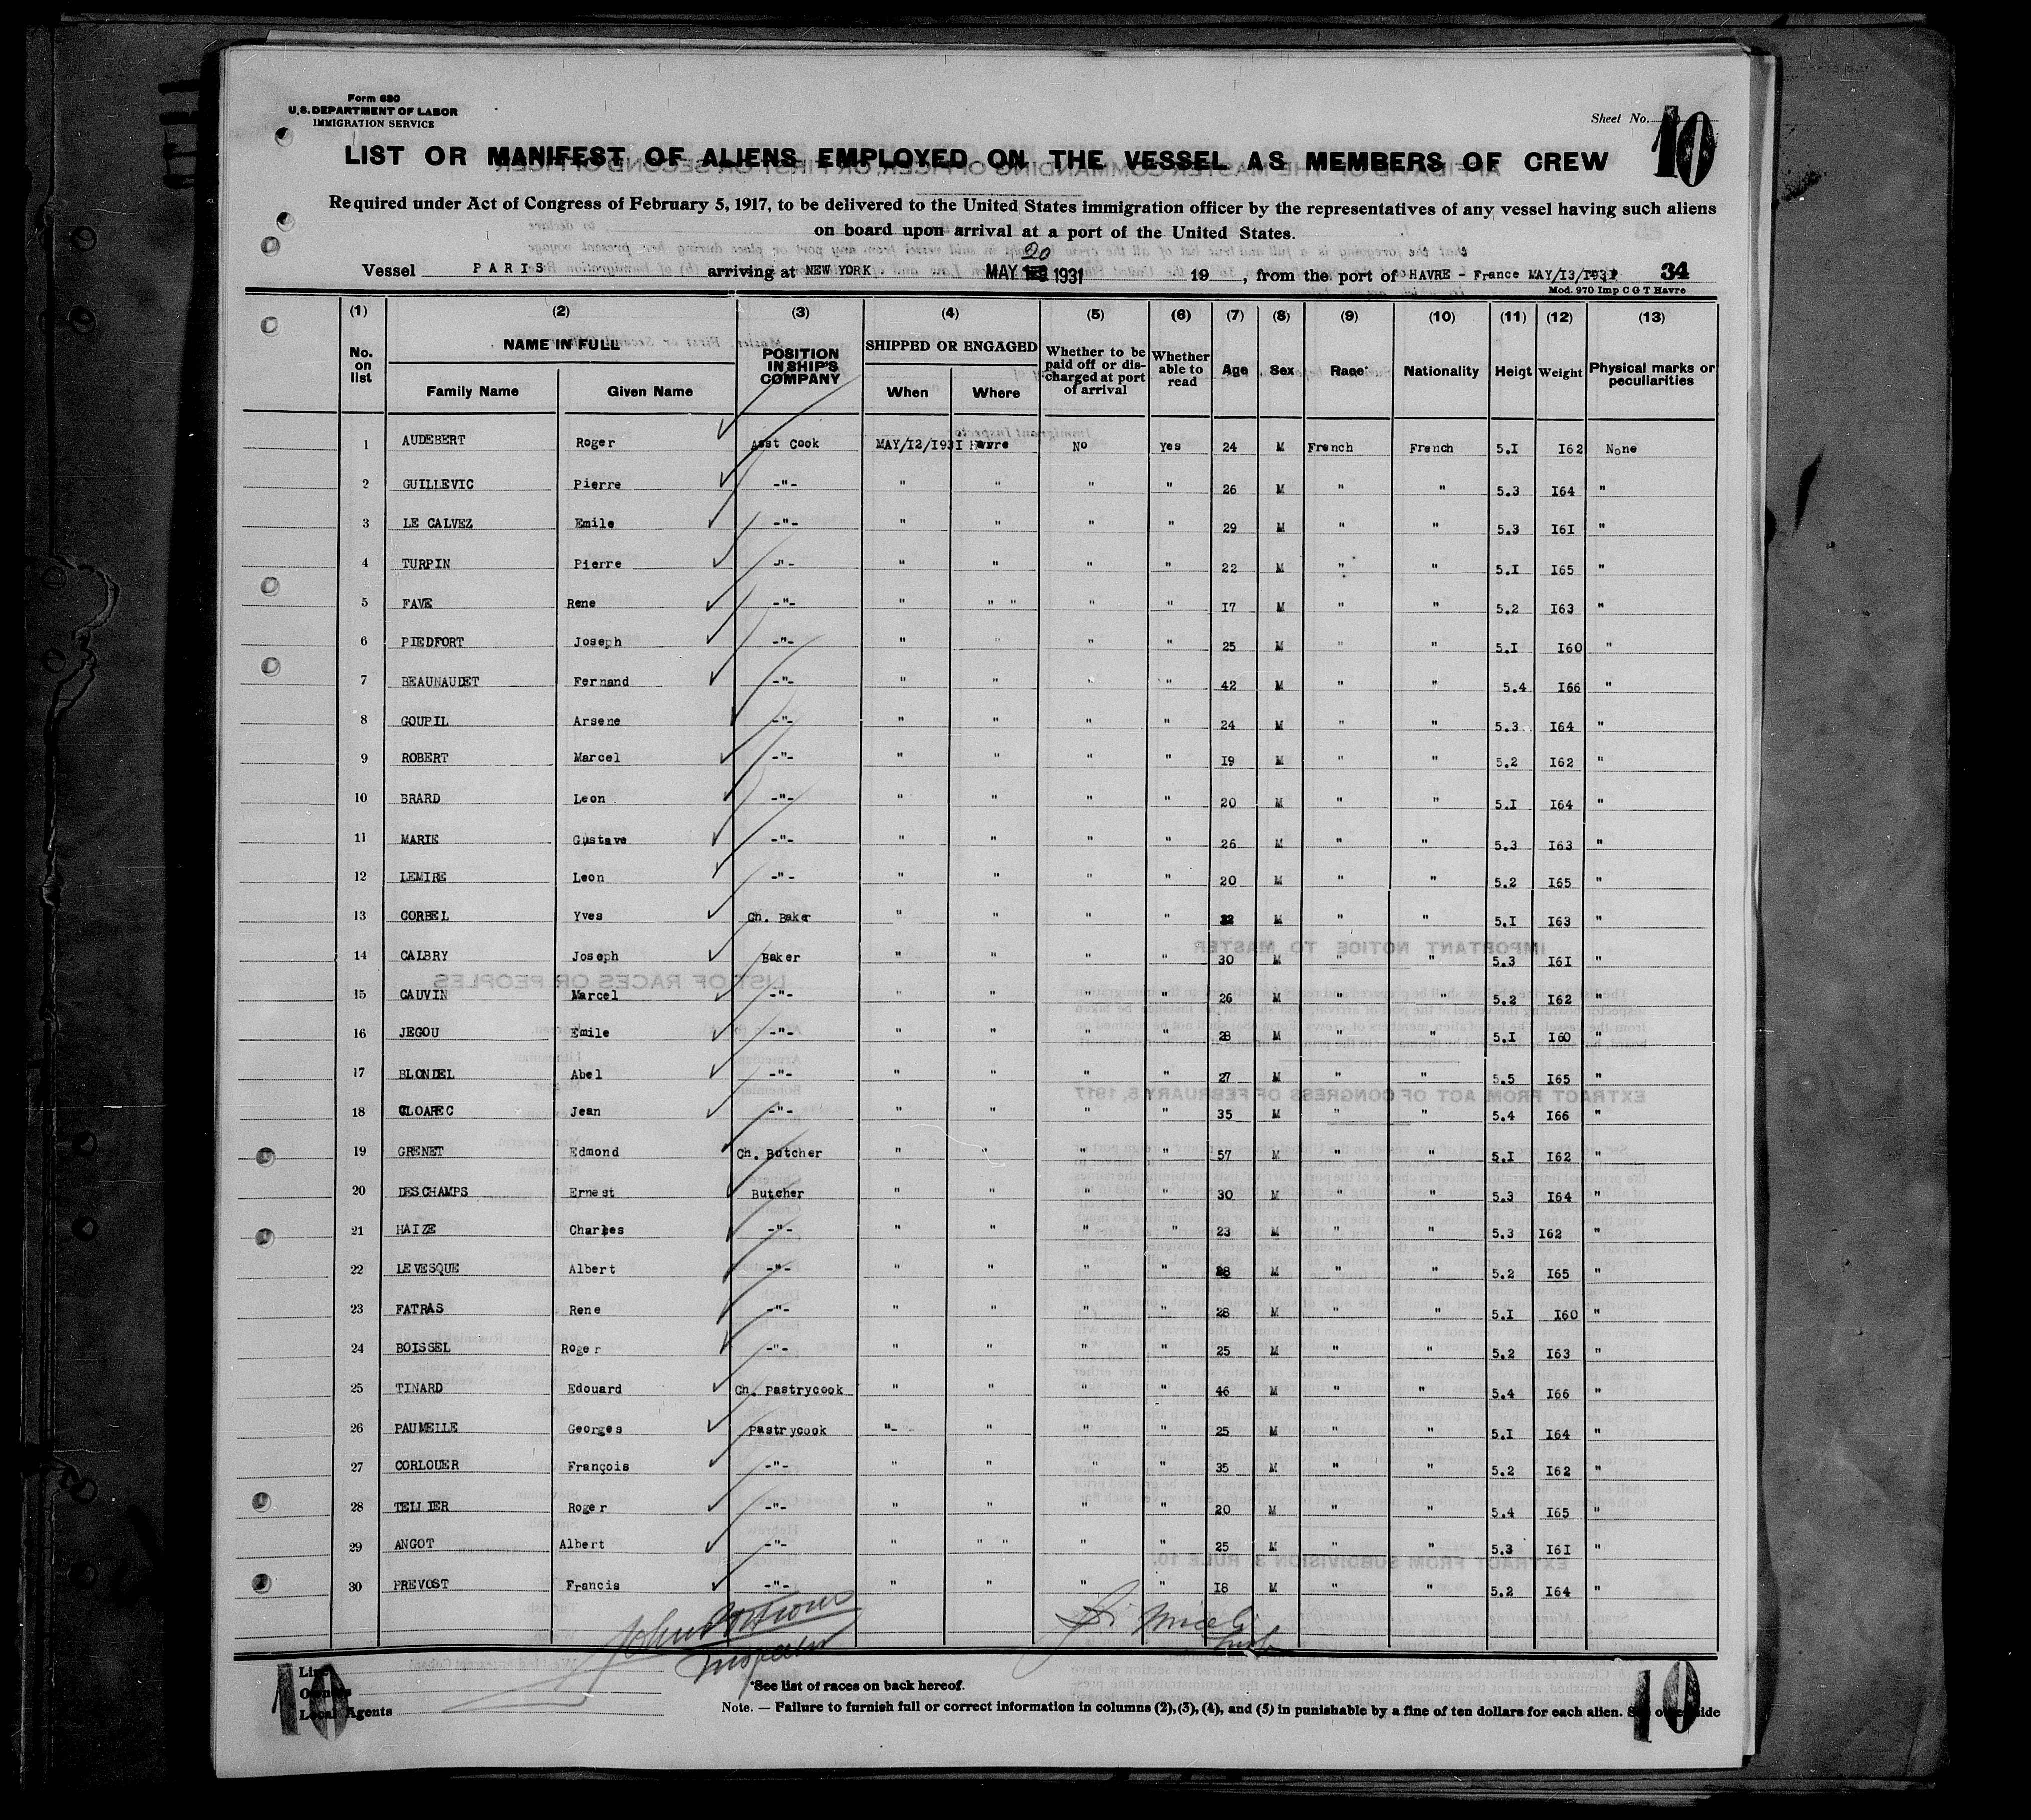 Form 680
U.S. DEPARTMENT OF LABOR
IMMIGRATION SERVICE
Sheet No. 10
LIST OR MANIFEST OF ALIENS EMPLOYED ON THE VESSEL AS MEMBERS OF CREW
Required under Act of Congress of February 5, 1917, to be delivered to the United States immigration officer by the representatives of any vessel having such aliens
on board upon arrival at a port of the United States.
20
Vessel PARIS arriving at NEW YORK MAY 1931 19 , from the port of HAVRE - France MAY/13/1931 34
Mod. 970 Imp C G T Havre
(1) (2) (3) (4) (5) (6) (7) (8) (9) (10) (11) (12) (13)
No. on list NAME IN FULL Family Name Given Name POSITION IN SHIP'S COMPANY SHIPPED OR ENGAGED When Where Whether to be paid off or discharged at port of arrival Whether able to read Age Sex Race* Nationality Heigt Weight Physical marks or peculiarities
1 AUDEBERT Roger Asst Cook MAY/I2/I93I Havre No Yes 24 M French French 5.I I62 None
2 GUILLEVIC Pierre -"- " " " " 26 M " " 5.3 I64 "
3 LE CALVEZ Emile -"- " " " " 29 M " " 5.3 I6I "
4 TURPIN Pierre -"- " " " " 22 M " " 5.I I65 "
5 FAVE Rene -"- " " " " " 17 M " " 5.2 I63 "
6 PIEDFORT Joseph -"- " " " " 25 M " " 5.I I60 "
7 BEAUNAUDET Fernand -"- " " " " 42 M " " 5.4 I66 "
8 GOUPIL Arsene -"- " " " " 24 M " " 5.3 I64 "
9 ROBERT Marcel -"- " " " " I9 M " " 5.2 I62 "
10 BRARD Leon -"- " " " " 20 M " " 5.I I64 "
11 MARIE Gustave -"- " " " " 26 M " " 5.3 I63 "
12 LEMIRE Leon -"- " " " " 20 M " " 5.2 I65 "
13 CORBEL Yves Ch. Baker " " " " M " " 5.I I63 "
14 CALBRY Joseph Baker " " " " 30 M " " 5.3 I6I "
15 CAUVIN Marcel -"- " " " " 26 M " " 5.2 I62 "
16 JEGOU Emile -"- " " " " 28 M " " 5.I I60 "
17 BLONDEL Abel -"- " " " " 27 M " " 5.5 I65 "
18 CLOAREC Jean -"- " " " " 35 M " " 5.4 I66 "
19 GRENET Edmond Ch. Butcher " " " " 57 M " " 5.I I62 "
20 DESCHAMPS Ernest Butcher " " " " 30 M " " 5.3 I64 "
21 HAIZE Charles -"- " " " " 23 M " " 5.3 I62 "
22 LEVESQUE Albert -"- " " " " M " " 5.2 I65 "
23 FATRAS Rene -"- " " " " 28 M " " 5.I I60 "
24 BOISSEL Roger -"- " " " " 25 M " " 5.2 I63 "
25 TINARD Edouard Ch. Pastrycook " " " " 46 M " " 5.4 I66 "
26 PAUMELLE Georges Pastrycook "- " " " 25 M " " 5.I I64 "
27 CORLOUER François -"- " " " " 35 M " " 5.2 I62 "
28 TELLIER Roger -"- " " " " 20 M " " 5.4 I65 "
29 ANGOT Albert -"- " " " " " 25 M " " 5.3 I6I "
30 PREVOST Francis -"- " " " " I8 M " " 5.2 I64 "
John
Inspector
Miceli
Insp
Line
Owners
Local Agents
*See list of races on back hereof.
Note. — Failure to furnish full or correct information in columns (2),(3),(4), and (5) in punishable by a fine of ten dollars for each alien. See other side
10
10